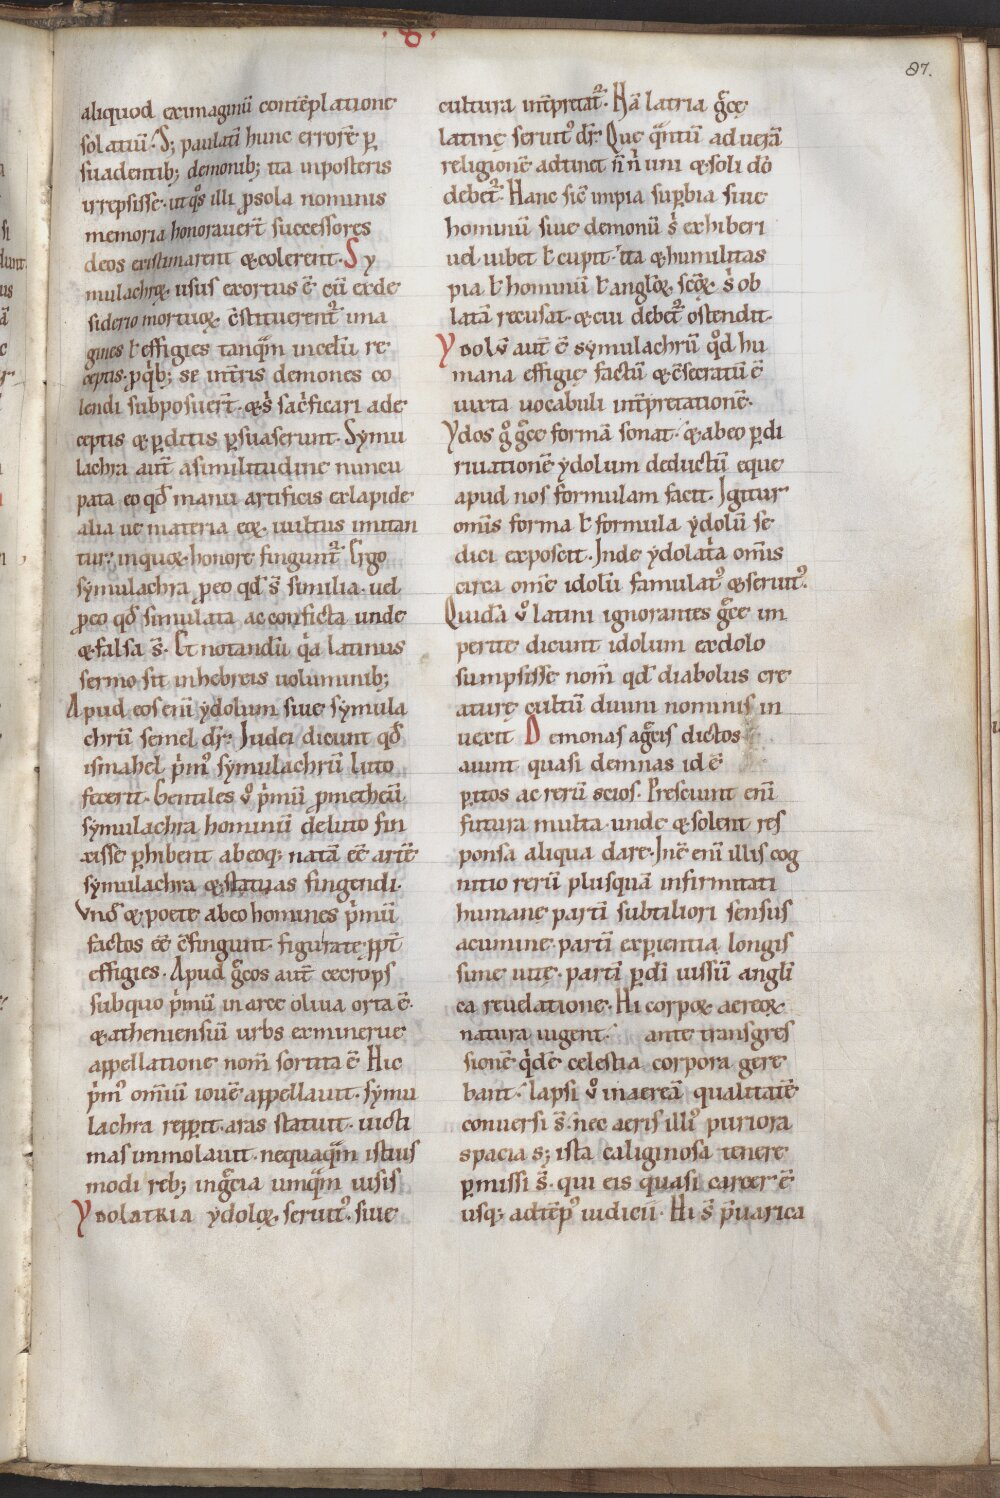 .8.
87.
aliquod eximaginū contēplatione
solatiū. S; paulatī hunc errorē ꝑ
suadentib; demonib; ita inposteris
irrepsisse. ut qͦs illi ꝓsola nominis
memoria honorauer̄t successores
deos existimarent & colerent. Sy
mulachroꝝ usus exortus ē cū exde
siderio mortuoꝝ c̄stituerent᷑ ima
gines ł effigies tanquā̄ incelū re
ceptis. ꝓqͥb; se int̄ris demones co
lendi subposuer̄t. & sͥ sacͥficari ade
ceptis & ꝑditis ꝑsuaserunt. Symu
lachra aut̄ asimilitudine nuncu
pata eo qd̄ manu artificis exlapide
alia ue materia eoꝝ uultus imitan
tur. inquoꝝ honore fingunt᷑. Ergo
symulachra ꝓeo qd̄ s̄ similia. uel
ꝓeo qd̄ simulata ac conficta unde
& falsa s̄. Et notandū qͥa latinus
sermo sit inhebreis uoluminib;
Apud eos enī ydolum siue symula
chrū semel dr̄. Iudei dicunt qd̄
ismahel pͥmꝰ symulachrū luto
fecerit. Gentiles vͦ pͥmū ꝓmetheū
symulachra hominū deluto fin
xisse ꝑhibent abeoq; natā ēē artē
symulachra & statuas fingendi.
Vnd̄ & poete abeo homines pͥmū
factos ēē c̄fingunt. figurate ꝓpt̄
effigies. Apud gͣcos aut̄ cecrops
subquo pͥmū in arce oliua orta ē.
& atheniensiū urbs exminerue
appellatione nom̄ sortita ē. Hic
pͥmꝰ omīū iouē appellauit. symu
lachra reꝑꝑit. aras statuit. uicti
mas immolauit. nequaqͣm istius
modi reb; ingͣcia umqͣm uisis
Ydolatria ydoloꝝ seruitꝰ. siue
cultura int̄pretat᷑. Nā latria gͣce
latinę seruitꝰ dr̄. Que qͣntū ad uerā
religionē adtinet n̄ nͥ uni & soli dō
debet᷑. Hanc sic̄ impia suꝑbia siue
hominū siue demonū sͥ exhiberi
uel iubet ł cupit. ita & humilitas
pia ł hominū ł angloꝝ scōꝝ sͥ ob
latā recusat. & cui debet᷑ ostendit.
Ydolū aut̄ ē symulachrū qͦd hu
mana effigie factū & c̄secratū ē
iuxta uocabuli int̄pretationē.
Ydos gͦ gͣce formā sonat. & abeo ꝑdi
riuationē ydolum deductū eque
apud nos formulam facit. Igitur
omīs forma ł formula ydolū se
dici exposcit. Inde ydolatͥa omīs
circa omē idolū famulatꝰ & seruitꝰ.
Quidā vͦ latini ignorantes gͣce im
perite dicunt idolum exdolo
sumpsisse nom̄ qd̄ diabolus cre
aturę cultū diuini nominis in
uexit Demonas agͣcis dictos
aiunt quasi demnas id ē
ꝑitos ac rerū scios. Presciunt enī
futura multa. unde & solent res
ponsa aliqua dare. Inē enī illis cog
nitio rerū plusquā infirmitati
humane partī subtiliori sensus
acumine. partī exꝑientia longis
sime uitę. partī ꝑdī iussū angli
ca reuelatione. Hi corpoꝝ aereoꝝ
natura uigent. ante transgres
sionē qͥdē celestia corpora gere
bant. lapsi vͦ in aereā qualitatē
conuersi s̄. nec aeris illiꝰ puriora
spacia s; ista caliginosa tenere
ꝑmissi s̄. qui eis quasi carcer ē
usq; ad tēpꝰ iudicii. Hi s̄ p̄uarica